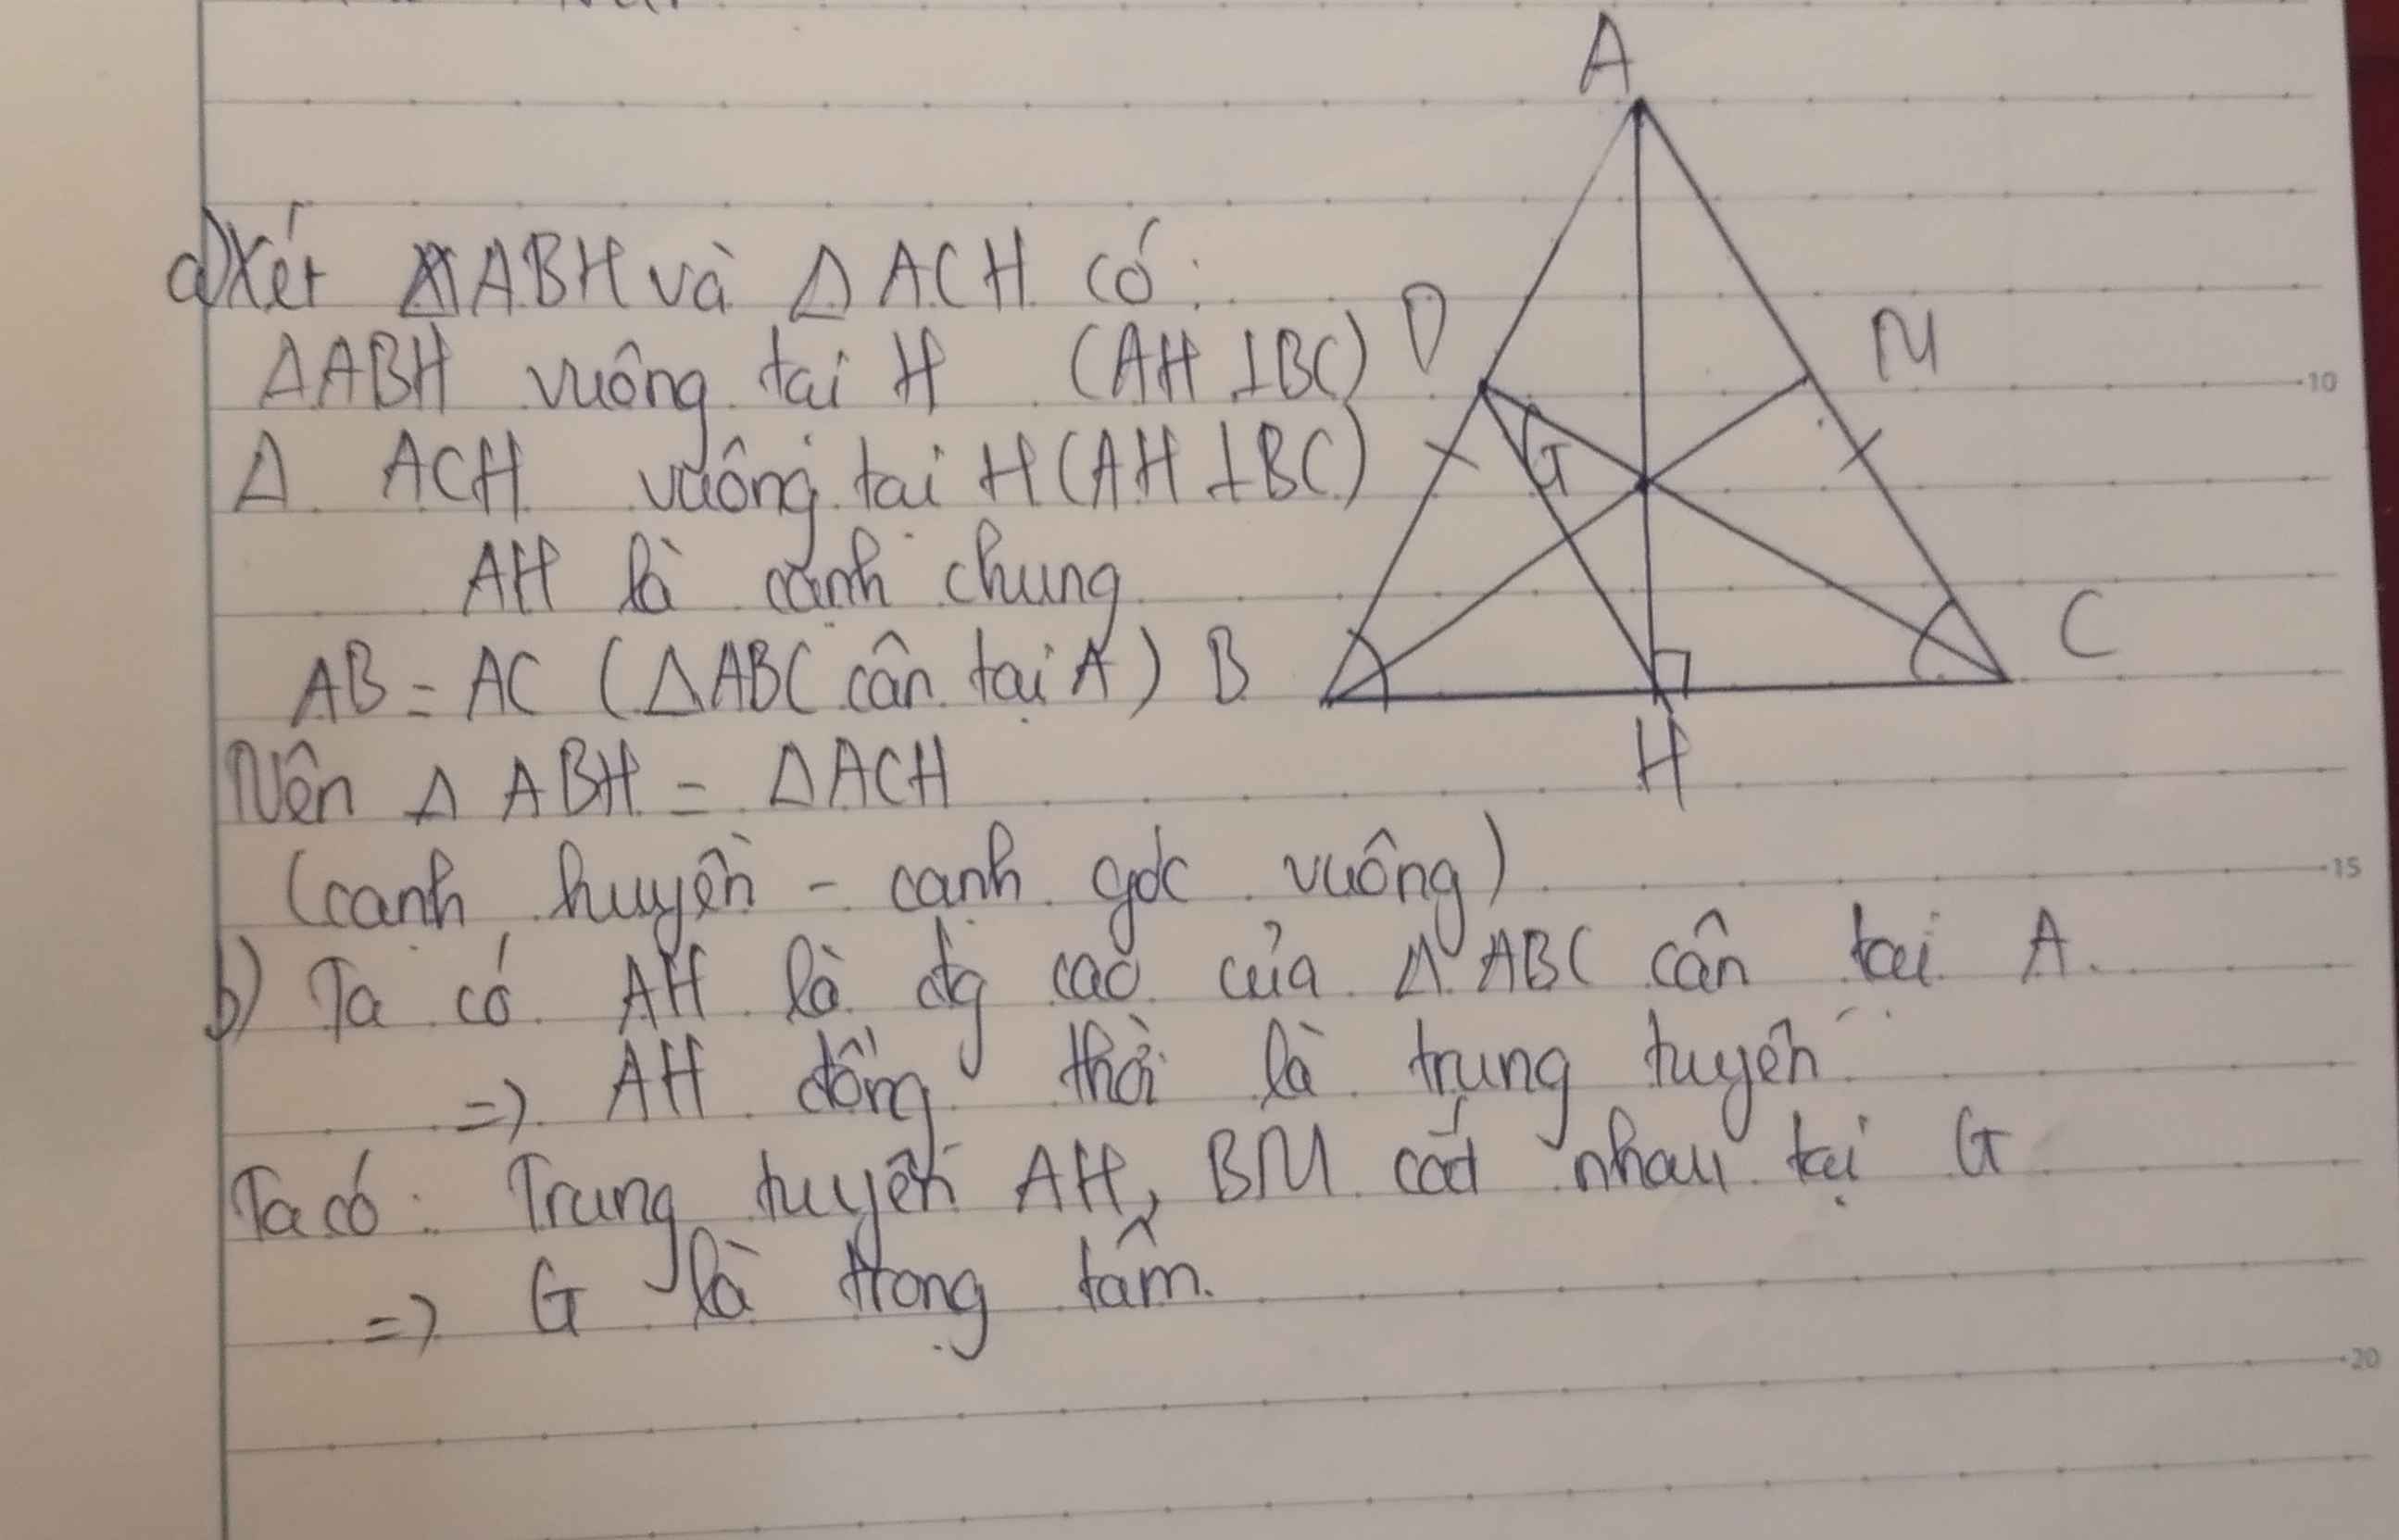 A
a) Xét △ABH và △ ACH có:
△ABH vuông tại H (AH ⊥BC)
D
M
△ ACH vuông tại H (AH ⊥BC)
G
AH là cạnh chung
AB = AC (△ABC cân tại A)
B
C
H
Nên △ ABH = △ACH
(cạnh huyền - cạnh góc vuông)
b) Ta có AH là đg cao của △ ABC cân tại A.
=> AH đồng thời là trung tuyến
Ta có: Trung tuyến AH, BM cắt nhau tại G
=> G là trọng tâm.
10
15
20